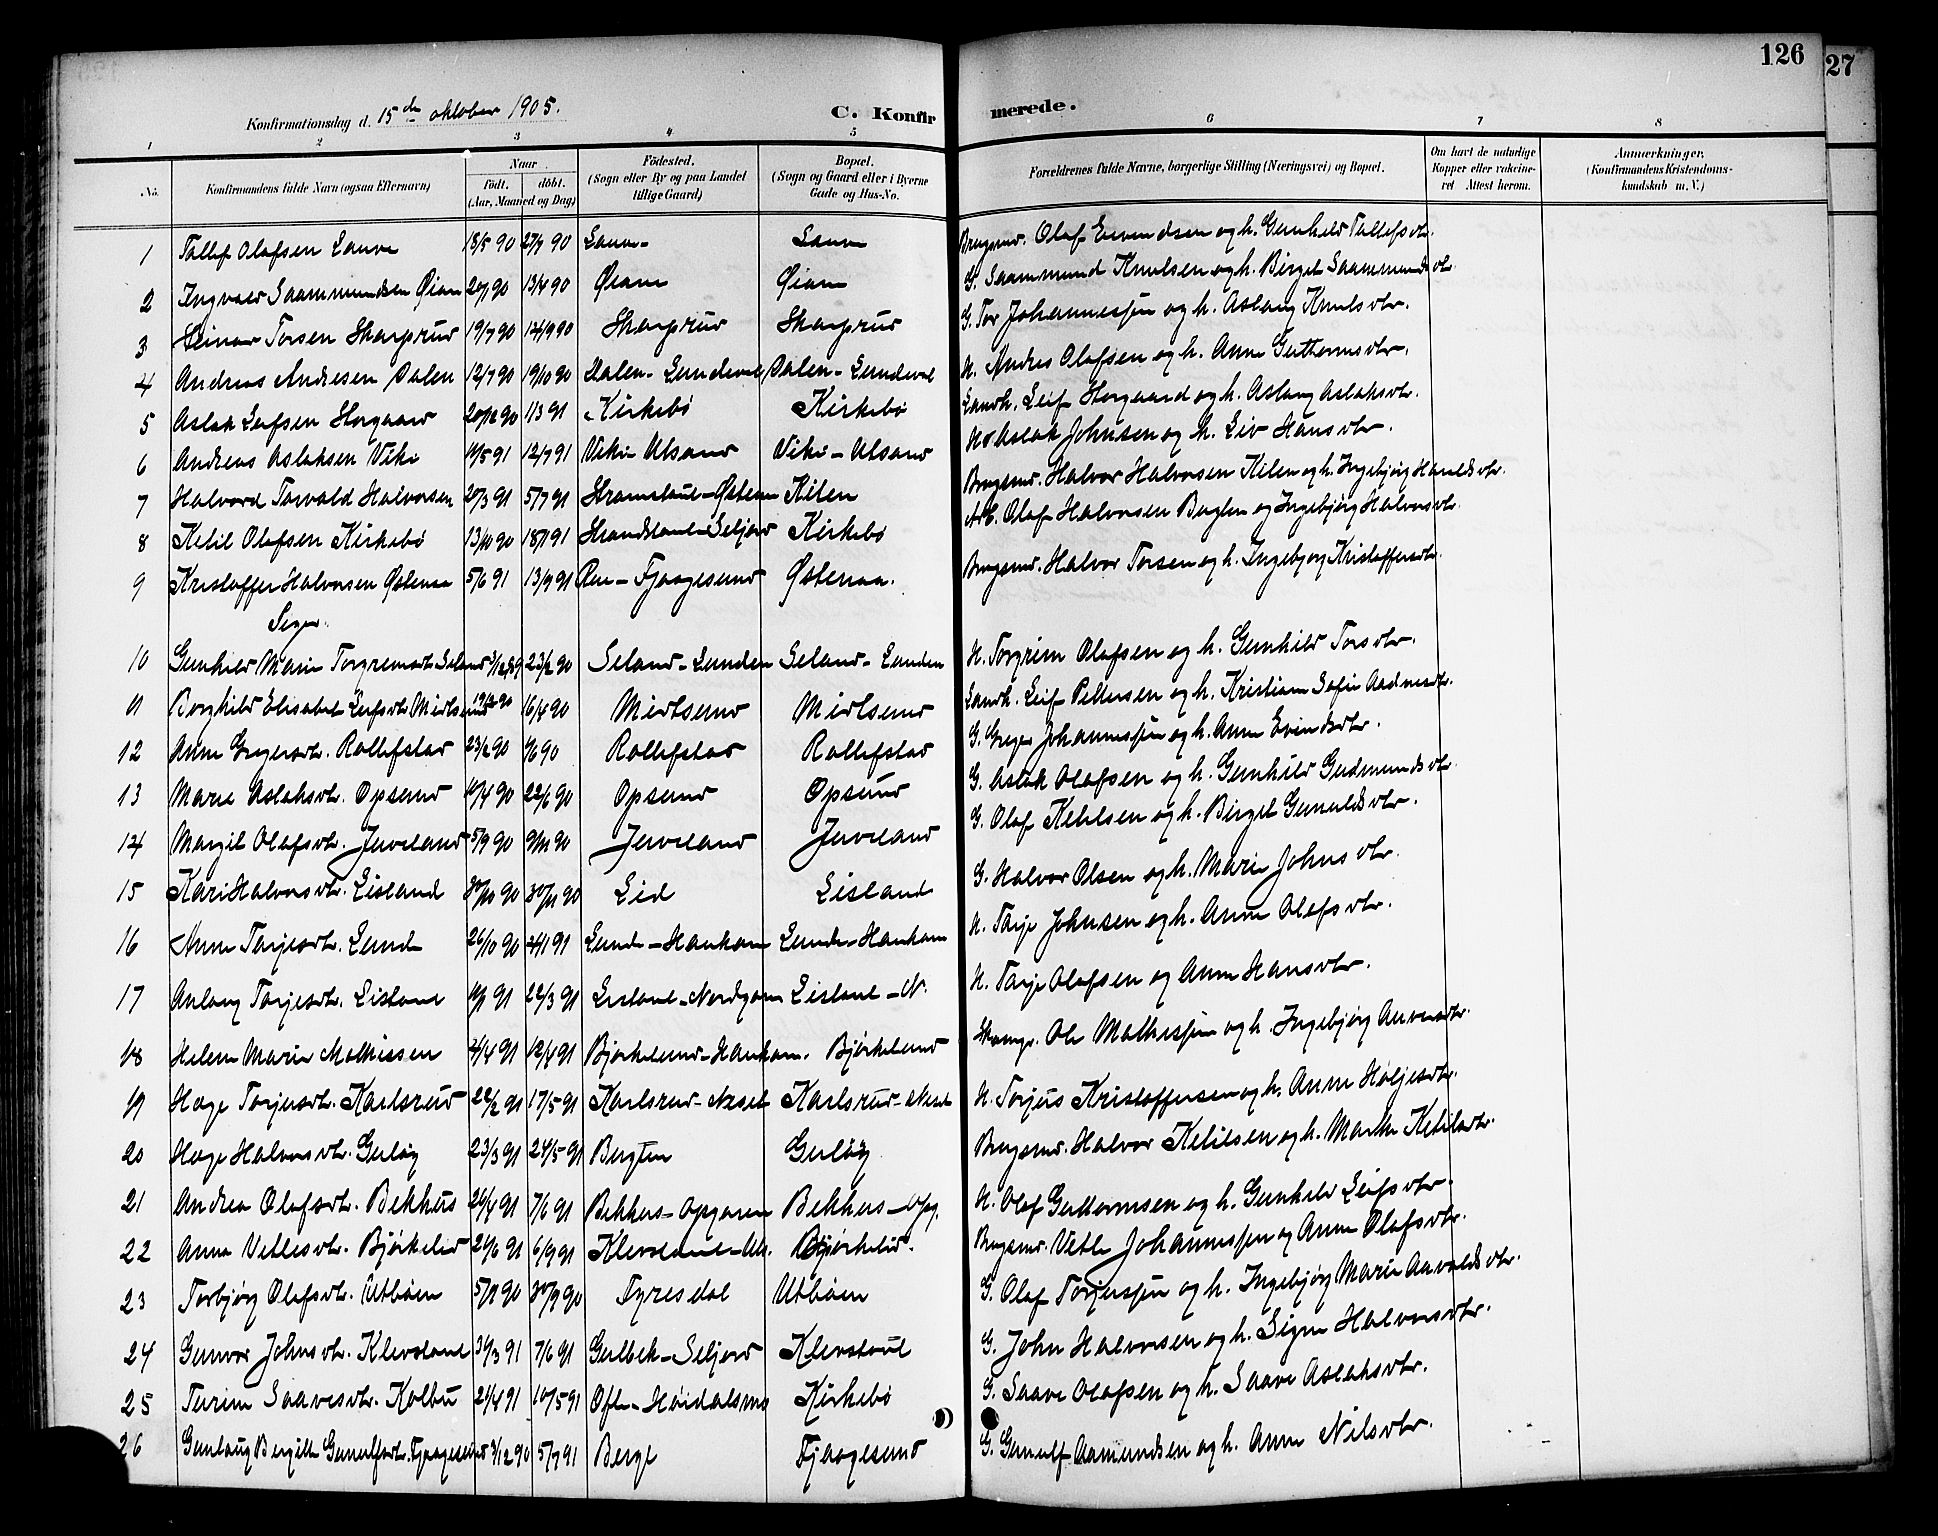 126
27
Konfirmationsdag d. 15de oktober 1905.
C. Konfirmerede.
1 2 3 4 5 6 7 8
No. Konfirmandens fulde Navn (ogsaa Efternavn) Naar født. døbt. (Aar, Maaned og Dag) Fødested. (Sogn eller By og paa Landet tillige Gaard) Bopæl. (Sogn og Gaard eller i Byerne Gade og Hus-No. Forældrenes fulde Navne, borgerlige Stilling (Næringsvei) og Bopæl. Om havt de naturlige Kopper eller vakcineret Attest herom. Anmærkninger, (Konfirmandens Kristendomskundskab m. V.)
1 Tallef Olafsen Lauve 18/5 90 27/7 90 Lauve Lauve Brugsmd. Olaf Eivendsen og h. Gunhild Tallefsdtr.
2 Ingvald Saammundsen Øian 20/1 90 13/4 90 Øian Øian G. Saammund Knutsen og h. Birgit Saammundsdtr.
3 Einar Torsen Skarprud 19/7 90 14/9 90 Skarprud Skarprud G. Tor Johannessøn og h. Aslaug Knutsdtr.
4 Andreas Andresen Dalen 12/7 90 19/10 90 Dalen - Lundeval Dalen - Lundeval H. Andres Olafsen og h. Anne Guthormsdtr.
5 Aslak Leifsen Horgaard 20/12 90 1/3 91 Kirkebø Kirkebø Landh. Leif Horgaard og h. Aslaug Aslaksdtr.
6 Andreas Aslaksen Viki 11/5 91 12/7 91 Viki - Utsand Viki - Utsand H. Aslak Johnsen og h. Liv Hansdtr.
7 Halvord Torvald Halvorsen 20/3 91 5/7 91 Kilen Brugsmd. Halvor Halvorsen Kilen og h. Ingebjørg Haraldsdtr.
8 Ketil Olafsen Kirkebø 13/10 90 18/1 91 Kirkebø Arb. Olaf Halvorsen og Ingebjørg Halvorsdtr.
9 Kristoffer Halvorsen Østenaa 5/6 91 13/9 91 Fjaagesund Østenaa. Brugsmd. Halvor Torsen og h. Ingebjørg Kristoffersdtr.
Piger.
10 Gunhild Marie Torgrimsdtr. Seland 3/12 89 23/2 90 Seland - Lunden Seland - Lunden H. Torgrim Olafsen og h. Gunhild Torsdtr.
11 Borghild Elisabet Leifsdtr. Midtsund 19/2 90 16/4 90 Midtsund Midtsund Landh. Leif Pettersen og h. Kristiane Sofie Aadnesdtr.
12 Anne Gregersdtr. Rollefstad 23/2 90 1/6 90 Rollefstad Rollefstad G. Greger Johannessøn og h. Anne Evindsdtr.
13 Marie Aslaksdtr. Opsund 11/4 90 22/6 90 Opsund Opsund G. Aslak Olafsen og h. Gunhild Gudmundsdtr.
14 Margit Olafsdtr. Juveland 5/9 90 9/11 90 Juveland Juveland G. Olaf Ketilsen og h. Birgit Gunuldsdtr.
15 Kari Halvorsdtr. Lisland 8/10 90 30/11 90 Lid Lisland G. Halvor Olsen og h. Marie Johnsdtr.
16 Anne Tarjesdtr. Lund 26/10 90 4/1 91 Lund - Haukom Lund - Haukom H. Tarje Johnsen og h. Anne Olafsdtr.
17 Aslaug Tarjesdtr. Lisland 11/1 91 22/3 91 Lisland - Nordgam Lisland - N. H. Tarje Olafsen og Anne Hansdtr.
18 Helene Marie Mathissen 4/4 91 12/4 91 Bjørkelund - Haukom. Bjørkelund Ole Mathissøn og h. Ingebjørg
19 Hæge Torjusdtr. Karlsrud 22/2 91 17/5 91 Karlsrud - Neset Karlsrud - Neset H. Torjus Kristoffersen og h. Anne Høljesdtr.
20 Hæge Halvorsdtr. Gerløy 23/3 91 24/5 91 Bergtun Gerløy Brugsmd. Halvor Ketilsen og h. Marthe Ketilsdtr.
21 Andrea Olafsdtr. Bekkhus 26/4 91 7/6 91 Bekkhus - Opgaren Bekkhus - Opg. H. Olaf Guttormsen og h. Gunhild Leifsdtr.
22 Anna Vetlesdtr. Bjørkelid 20/6 91 6/9 91 Bjørkelid. Brugsmd. Vetle Johannessøn og Anne Olafsdtr.
23 Torbjørg Olafsdtr. Utbøen 5/7 90 30/9 90 Tyresdal Utbøen G. Olaf Torjussøn og h. Ingebjørg Marie Aavaldsdtr.
24 Gunvor Johnsdtr. Klevstaul 30/3 91 7/6 91 Gulbek - Seljord Klevstaul G. John Halvorsen og h. Signe Halvorsdtr.
25 Turine Saavesdtr. Kolbu 21/4 91 10/5 91 Ofte - Høidalsmo Kirkebø G. Saave Olafsen og h. Saave Aslaksdtr.
26 Gunlaug Bergitte Gunulfsdtr. Fjaagesund 3/12 90 5/7 91 Berge Fjaagesund G. Gunulf Aamundsen og h. Anne Nilsdtr.